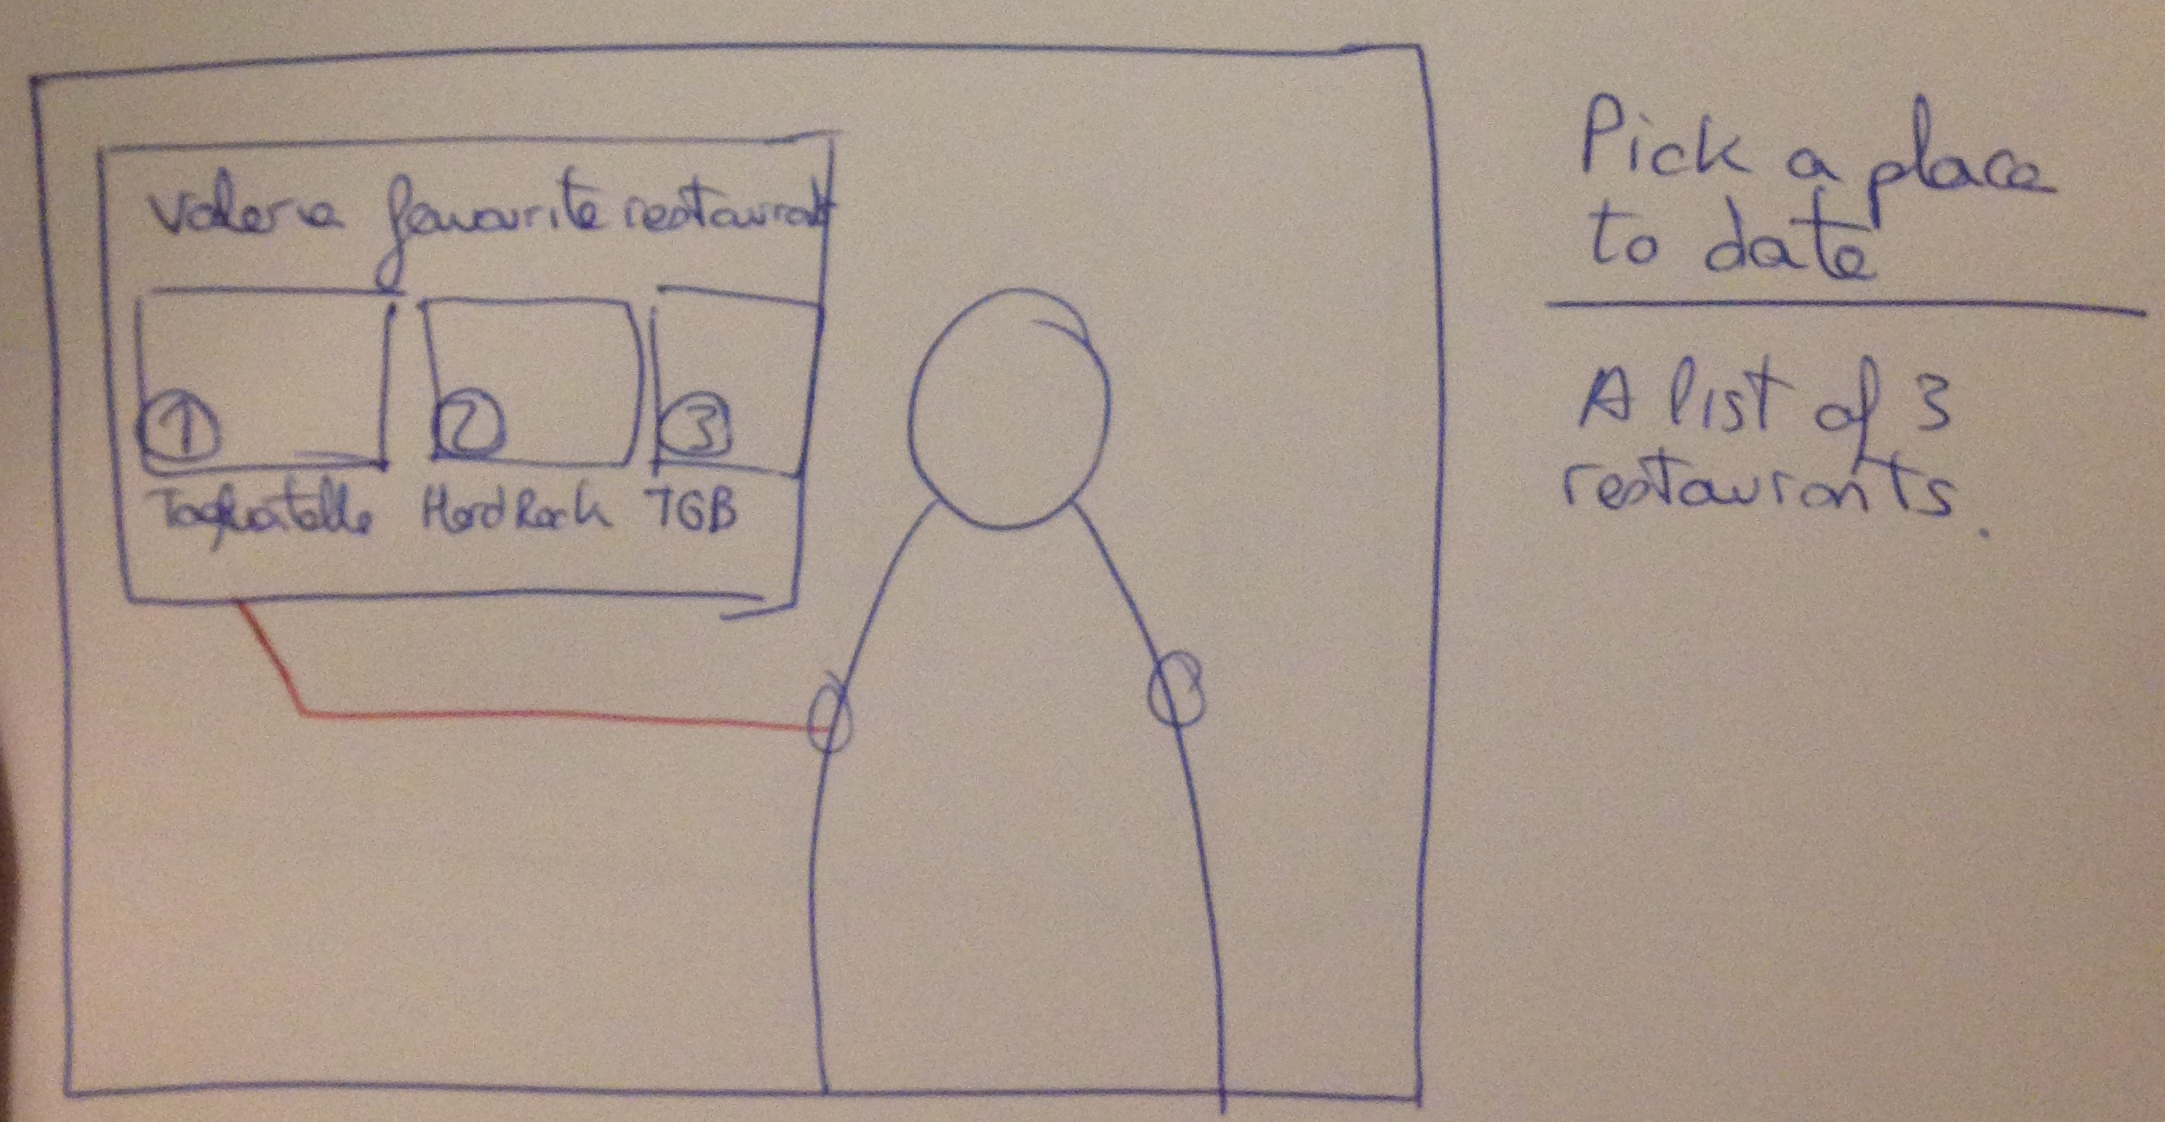 Valeria favourite restaurant
1 2 3
Tagliatella Hard Rock TGB
Pick a place
to date
A list of 3
restaurants.